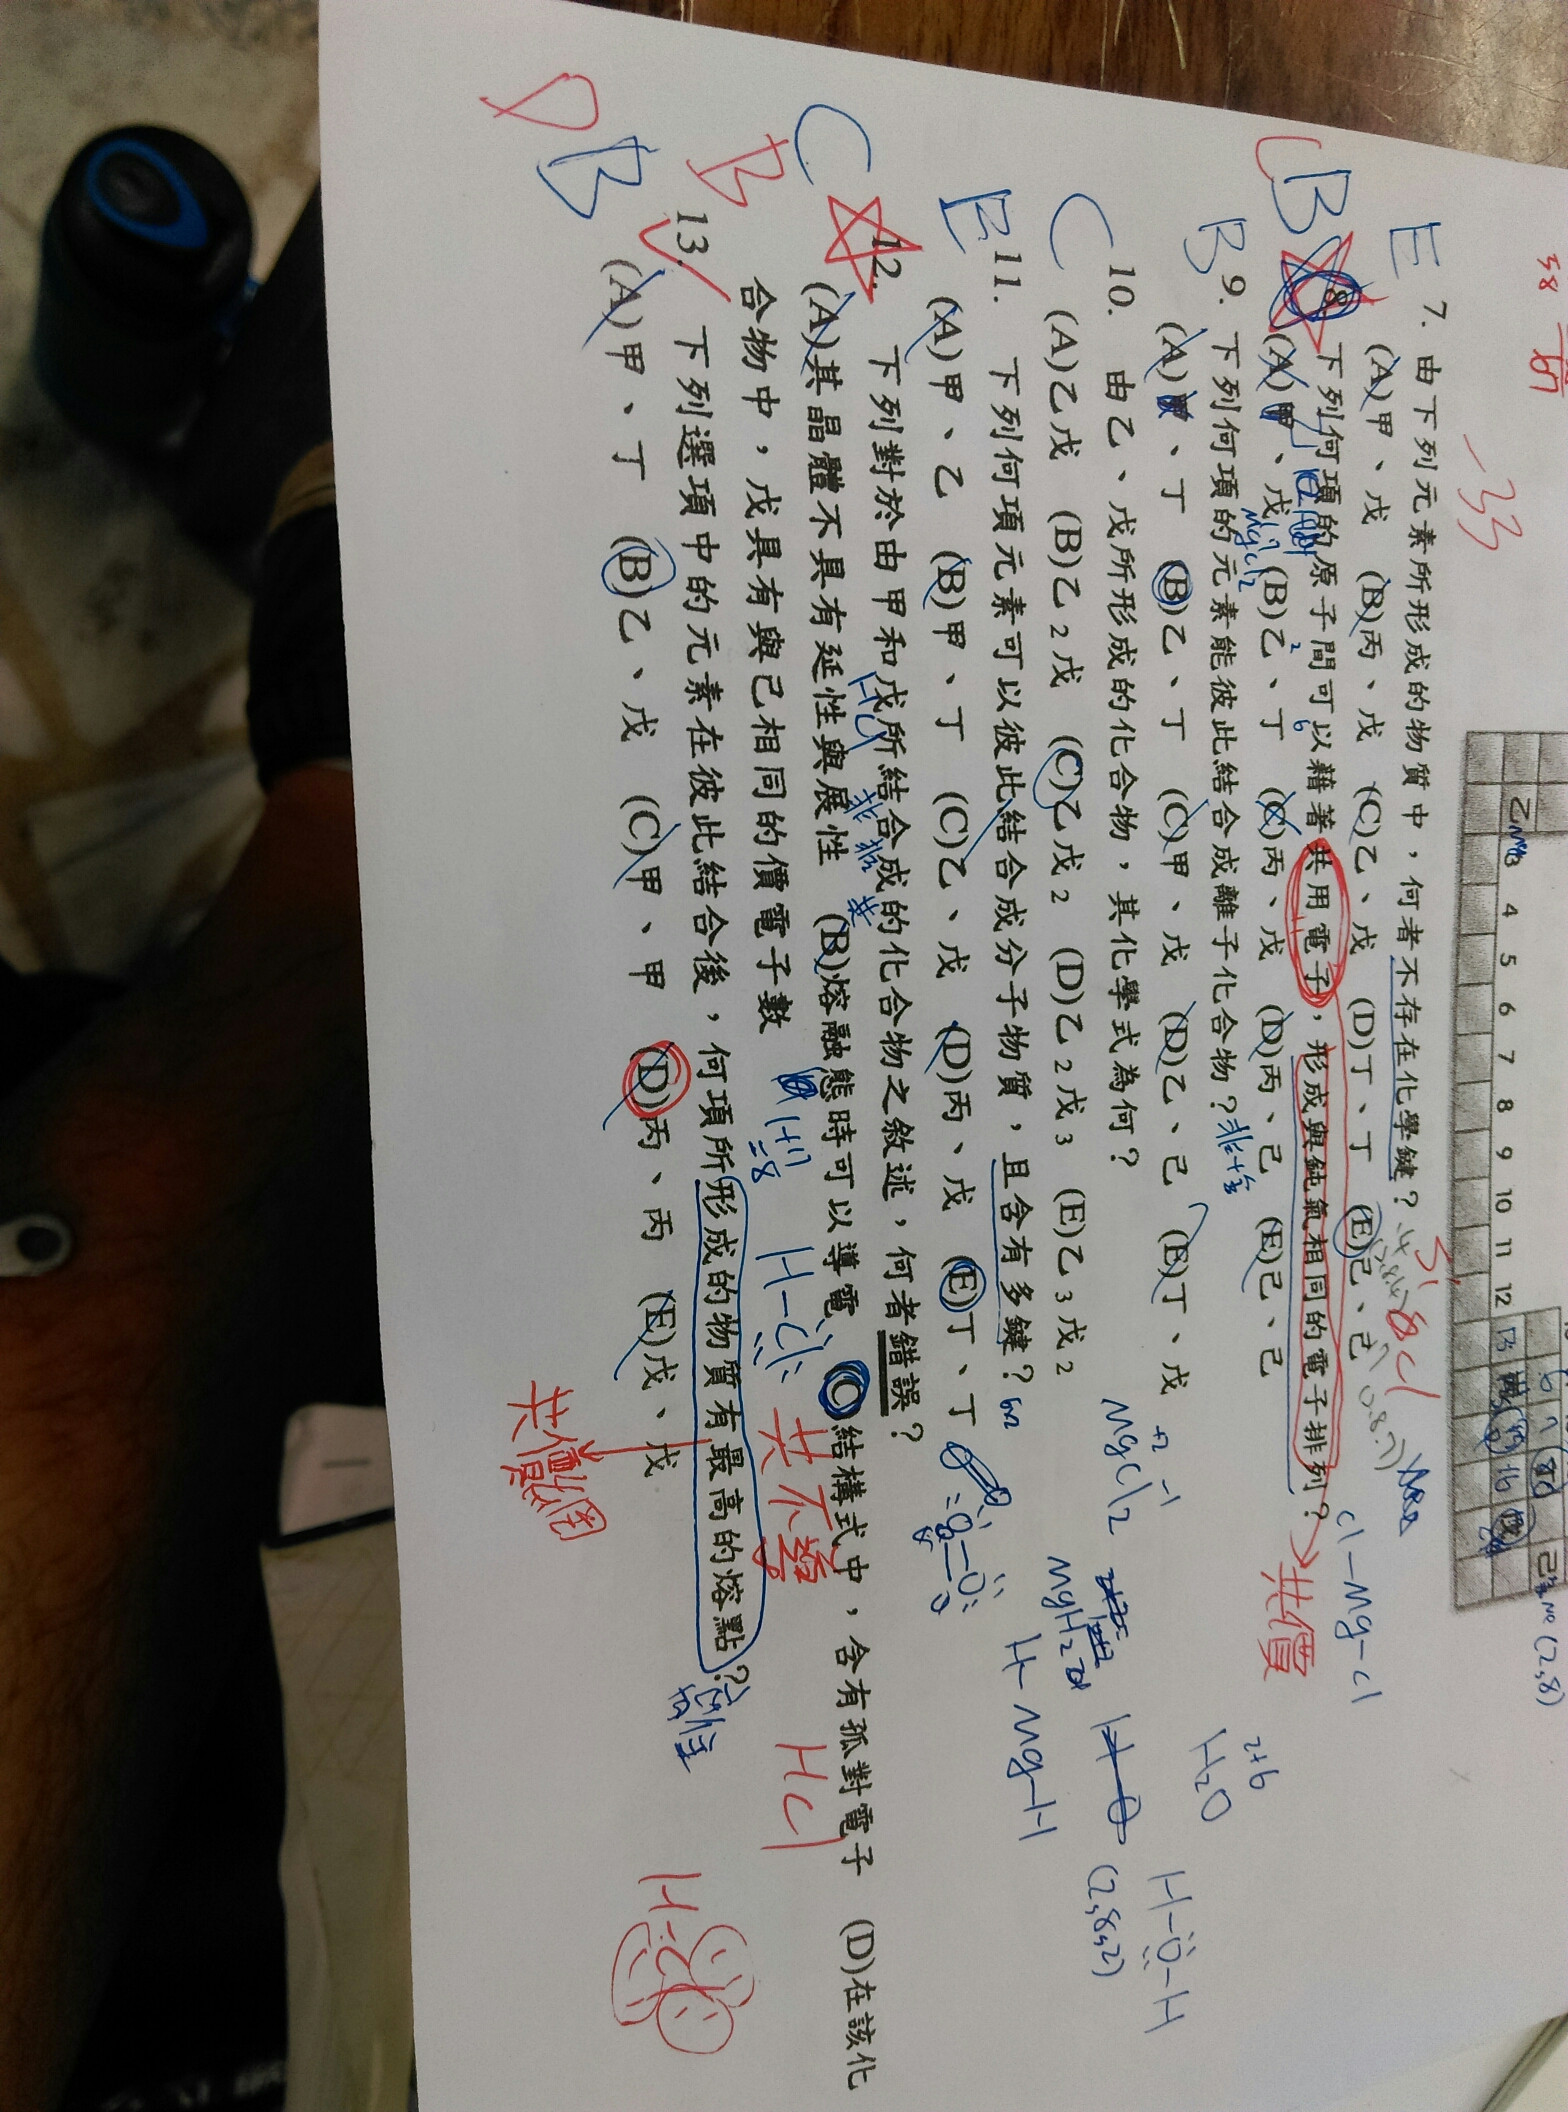 乙 4 5 6 7 8 9 10 11 12
E 7. 由下列元素所形成的物質中，何者不存在化學鍵？
(A)甲、戊 (B)丙、戊 (C)乙、戊 (D)丁、丁 (E)己、己
8. 下列何項的原子間可以藉著共用電子，形成與鈍氣相同的電子排列？
共價
(A)甲、戊 (B)乙、丁 (C)丙、戊 (D)丙、己 (E)己、己
B 9. 下列何項的元素能彼此結合成離子化合物？
(A)甲、丁 (B)乙、丁 (C)甲、戊 (D)乙、己 (E)丁、戊
C 10. 由乙、戊所形成的化合物，其化學式為何？
(A)乙戊 (B)乙2戊 (C)乙戊2 (D)乙2戊3 (E)乙3戊2
E 11. 下列何項元素可以彼此結合成分子物質，且含有多鍵？
(A)甲、乙 (B)甲、丁 (C)乙、戊 (D)丙、戊 (E)丁、丁
C 12. 下列對於由甲和戊所結合成的化合物之敘述，何者錯誤？
(A)其晶體不具有延性與展性 (B)熔融態時可以導電 (C)結構式中，含有孤對電子 (D)在該化
合物中，戊具有與己相同的價電子數
B 13. 下列選項中的元素在彼此結合後，何項所形成的物質有最高的熔點？
(A)甲、丁 (B)乙、戊 (C)甲、甲 (D)丙、丙 (E)戊、戊
Cl-Mg-Cl
H2O
H-O-H
MgCl2
H-Mg-H
(2,8,2)
H-Cl
共不導
HCl
共價網